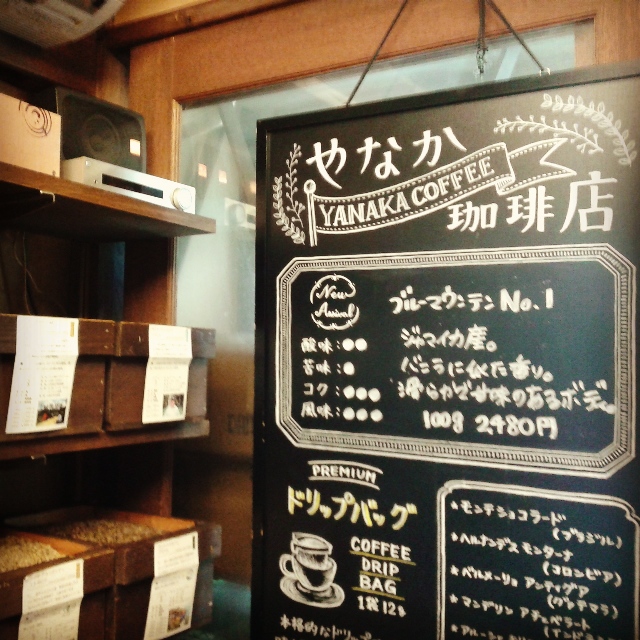 やなか
YANAKA COFFEE
珈琲店
New
Arrival
ブルーマウンテン No.1
酸味:●●
苦味:●
コク:●●●
風味:●●●
ジャマイカ産。
バニラに似た香り。
滑らかで甘味のあるボディ。
100g 2480円
PREMIUM
ドリップバッグ
COFFEE
DRIP
BAG
1袋12g
本格的なドリップ
★モンテショコラード
(ブラジル)
★ハルナンデス モンターナ
(コロンビア)
★パルメーリョ アンティグア
(グァテマラ)
★マンデリン